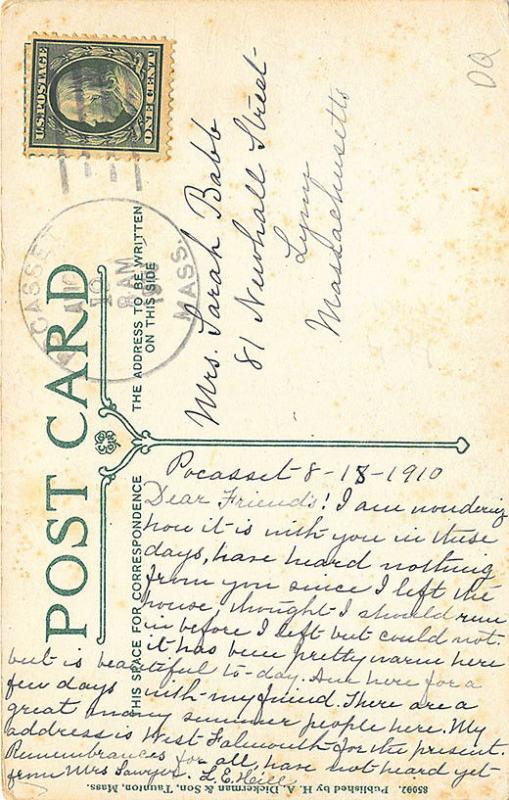 U.S. POSTAGE
ONE CENT
POCASSET
8 AM
MASS.
POST CARD
THE ADDRESS TO BE WRITTEN
ON THIS SIDE
THIS SPACE FOR CORRESPONDENCE
Mrs. Sarah Babb
81 Newhall Street
Lynn
Massachusetts
Pocasset 8-18-1910
Dear Friends! I am wondering
how it is with you in these
days, have heard nothing
from you since I left the
house, thought I should run
in before I left but could not.
it has been pretty warm here
but is beautiful to-day. Am here for a
few days with my friend. There are a
great many summer people here. My
address is West Falmouth for the present.
Remembrances for all, have not heard yet
from Mrs Sawyer. L. E.
85002. Published by H. A. Dickerman & Son, Taunton, Mass.